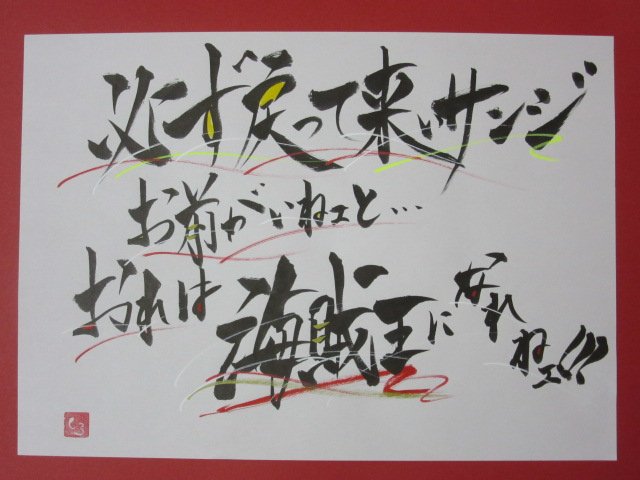 必ず戻って来いサンジ
お前がいねェと…
おれは海賊王になれねェ!!!